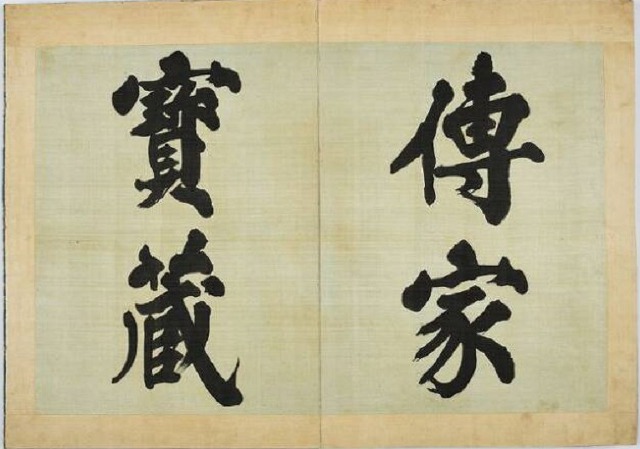 傳家
寶藏